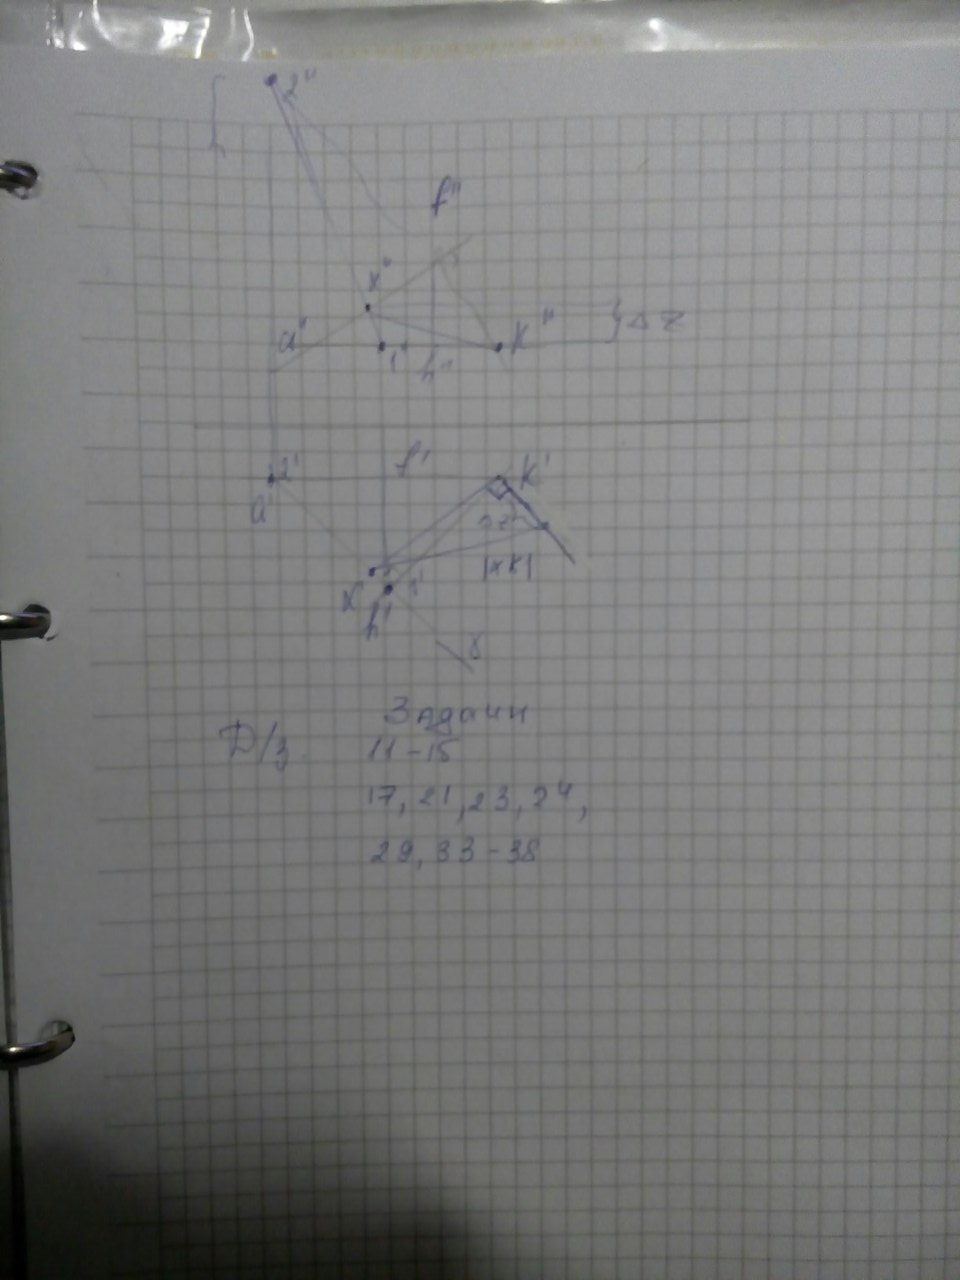 2"
f"
x"
a" 1" h" K" Δz
2' f' K'
a' Δz
|xK|
x' 1'
h'
Задачи
Д/з 11-15
17, 21, 23, 24,
29, 33-38